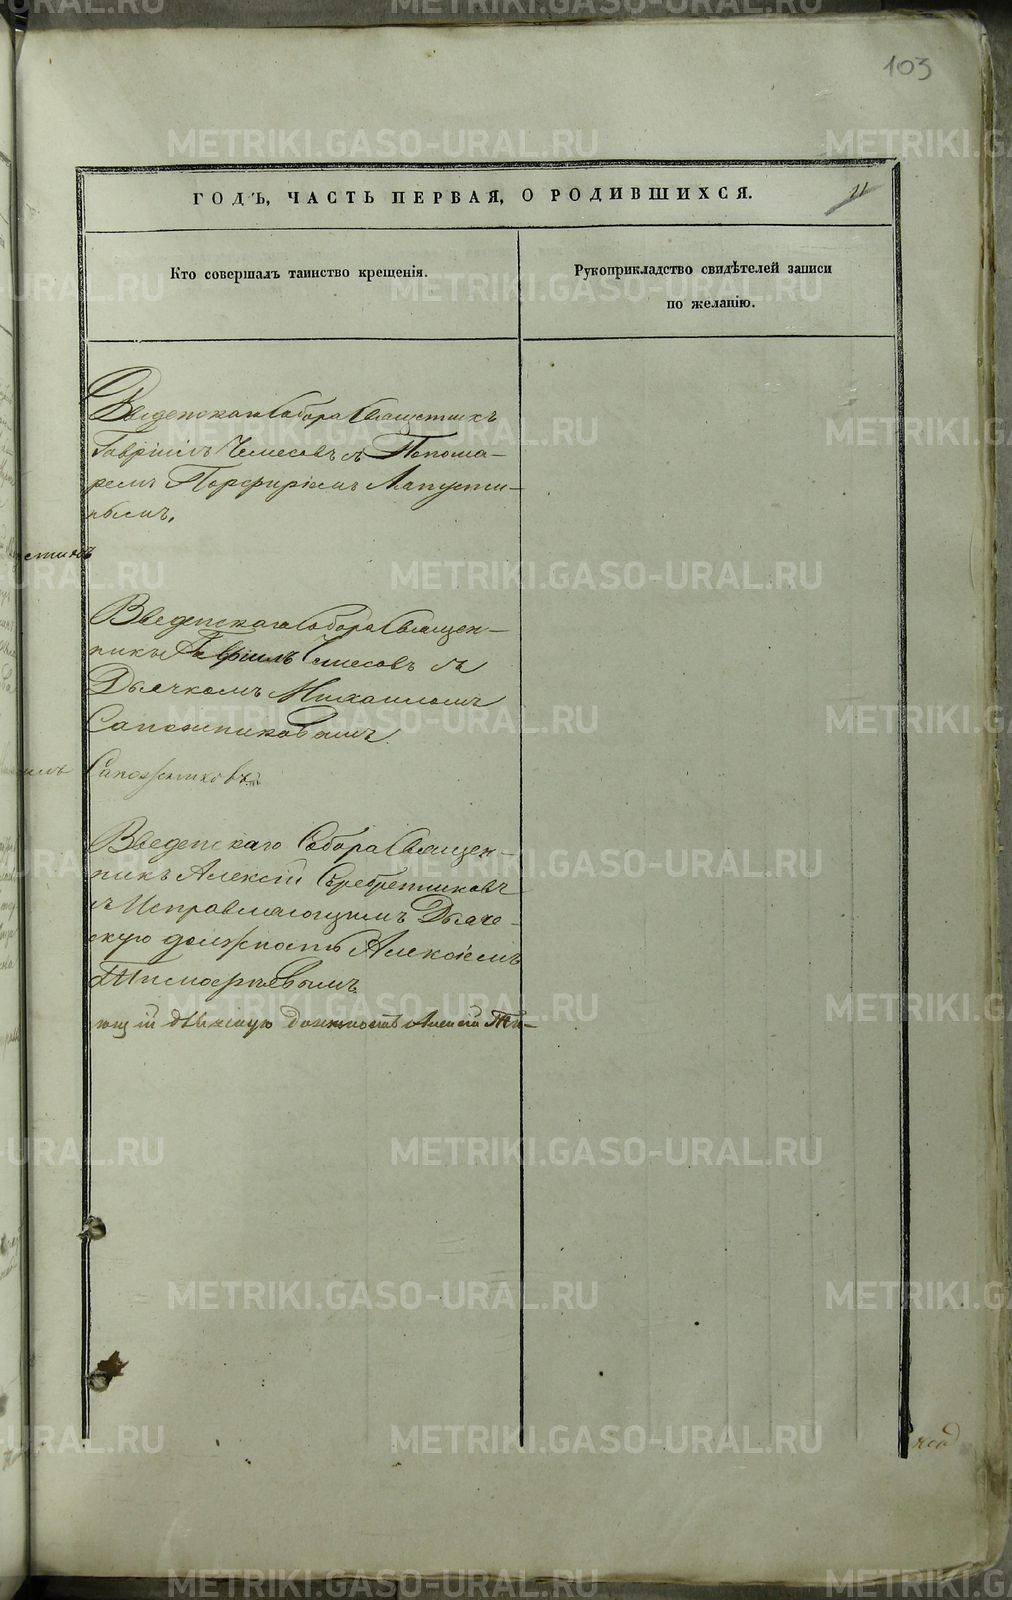 103
ГОДЪ, ЧАСТЬ ПЕРВАЯ, О РОДИВШИХСЯ.
11
Кто совершалъ таинство крещенія.
Рукоприкладство свидѣтелей записи
по желанію.
Введенскаго Собора Священникъ
Гавріилъ Чемесовъ съ Понома-
ремъ Порфиріемъ Лапусти-
нымъ.
Введенскаго Собора Священ-
никъ Гавріилъ Чемесовъ съ
Дьячкомъ Михаиломъ
Сапожниковымъ.
Сапожниковъ
Введенскаго Собора Священ-
никъ Алексій Серебренниковъ
съ Исправляющимъ Дьяче-
скую должность Алексіемъ
Тимофѣевымъ.
ющій дьяческую должность Алексій Ти-
METRIKI.GASO-URAL.RU